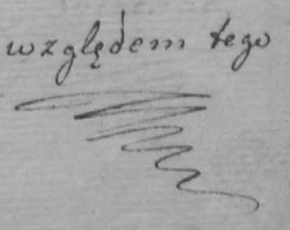 względem tego